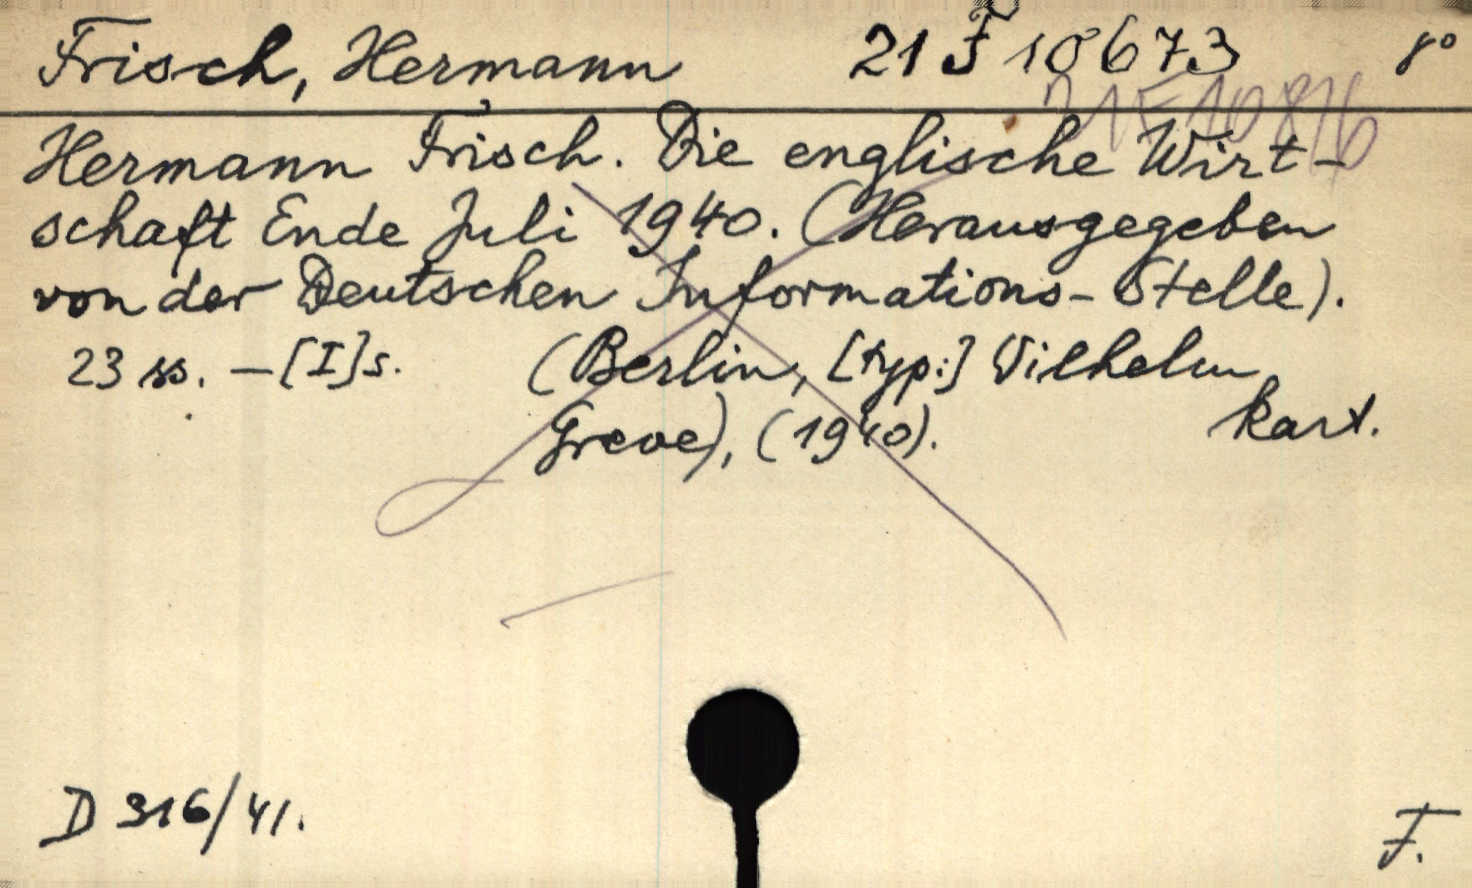 Frisch, Hermann 21 F 10673 8°
21 F 10876
Hermann Frisch. Die englische Wirt-
schaft Ende Juli 1940. (Herausgegeben
von der Deutschen Informations-Stelle).
23 ss. - [I] s. (Berlin, [typ:] Wilhelm
Greve), (1940). kart.
D 316/41. F.